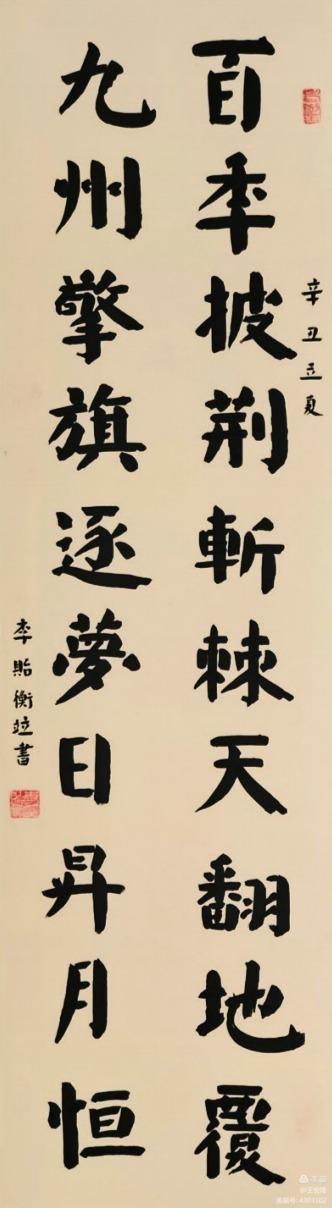 辛丑立夏
百年披荆斬棘天翻地覆
九州擎旗逐夢日昇月恒
李貽衡竝書